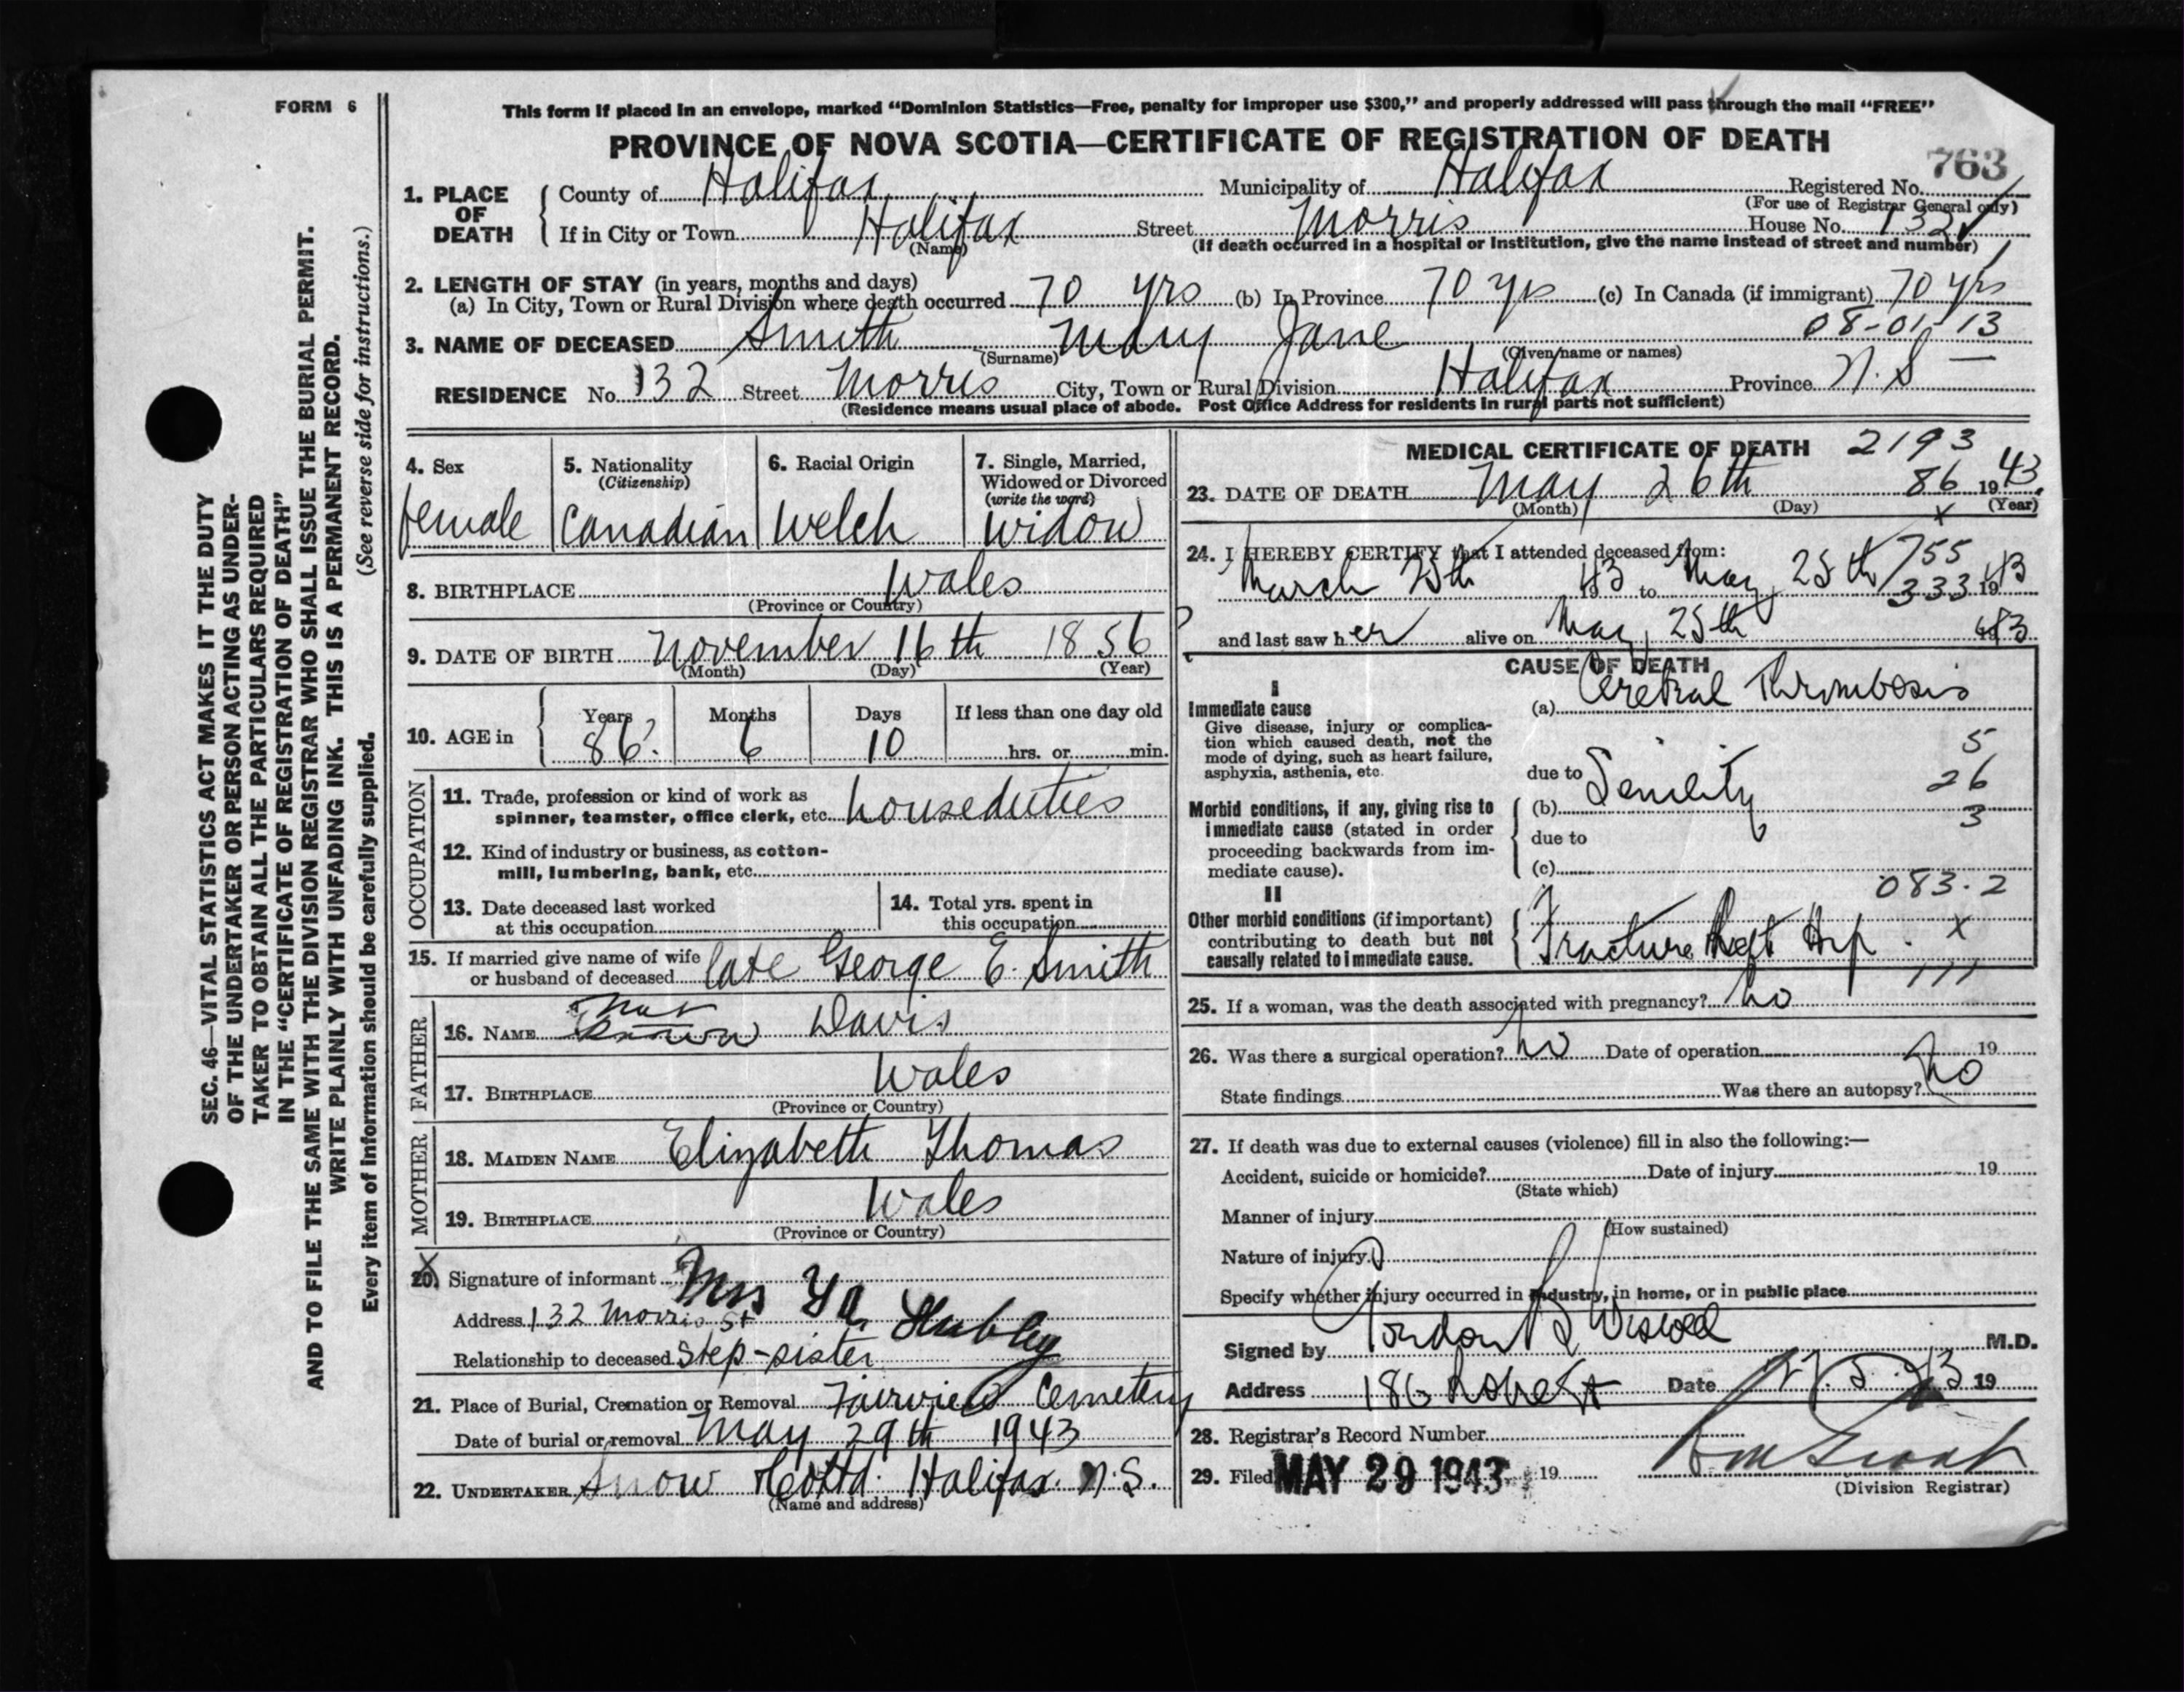 FORM 6
This form if placed in an envelope, marked “Dominion Statistics—Free, penalty for improper use $300,” and properly addressed will pass through the mail “FREE”
PROVINCE OF NOVA SCOTIA—CERTIFICATE OF REGISTRATION OF DEATH
763
1. PLACE OF DEATH County of Halifax Municipality of Halifax Registered No.
(For use of Registrar General only)
If in City or Town Halifax Street Morris House No. 132
(Name) (If death occurred in a hospital or institution, give the name instead of street and number)
2. LENGTH OF STAY (in years, months and days)
(a) In City, Town or Rural Division where death occurred 70 yrs (b) In Province 70 yrs (c) In Canada (if immigrant) 70 yrs
08-01-13
3. NAME OF DECEASED Smith Mary Jane
(Surname) (Given name or names)
RESIDENCE No. 132 Street Morris City, Town or Rural Division Halifax Province N.S —
(Residence means usual place of abode. Post Office Address for residents in rural parts not sufficient)
4. Sex 5. Nationality 6. Racial Origin 7. Single, Married,
(Citizenship) Widowed or Divorced
(write the word)
female Canadian Welch Widow
8. BIRTHPLACE Wales
(Province or Country)
9. DATE OF BIRTH November 16th 1856
(Month) (Day) (Year)
10. AGE in Years Months Days If less than one day old
86 6 10 hrs. or min.
OCCUPATION
11. Trade, profession or kind of work as
spinner, teamster, office clerk, etc. house duties
12. Kind of industry or business, as cotton-
mill, lumbering, bank, etc.
13. Date deceased last worked 14. Total yrs. spent in
at this occupation this occupation
15. If married give name of wife
or husband of deceased late George E. Smith
FATHER
not
16. NAME known Davis
17. BIRTHPLACE Wales
(Province or Country)
MOTHER
18. MAIDEN NAME Elizabeth Thomas
19. BIRTHPLACE Wales
(Province or Country)
X
20. Signature of informant Mrs Hubley
Address 132 Morris St
Relationship to deceased Step-sister
21. Place of Burial, Cremation or Removal Fairview Cemetery
Date of burial or removal May 29th 1943
22. UNDERTAKER Snow & Co Ltd. Halifax. N.S.
(Name and address)
MEDICAL CERTIFICATE OF DEATH 2193
23. DATE OF DEATH May 26th 86 1943.
(Month) (Day) (Year)
x
24. I HEREBY CERTIFY that I attended deceased from: 755
March 25th 1943 to May 25th 333 1943
and last saw her alive on May, 25th 43
CAUSE OF DEATH
I
Immediate cause (a) Cerebral Thrombosis
Give disease, injury or complica-
tion which caused death, not the
mode of dying, such as heart failure,
asphyxia, asthenia, etc. due to
5
26
3
Morbid conditions, if any, giving rise to (b) Senility
immediate cause (stated in order due to
proceeding backwards from im-
mediate cause). (c)
083.2
II
Other morbid conditions (if important)
contributing to death but not Fracture Left Hip. x
causally related to immediate cause.
111
25. If a woman, was the death associated with pregnancy? no
26. Was there a surgical operation? no Date of operation 19
State findings Was there an autopsy? no
27. If death was due to external causes (violence) fill in also the following:—
Accident, suicide or homicide? Date of injury 19
(State which)
Manner of injury
(How sustained)
Nature of injury
Specify whether injury occurred in industry, in home, or in public place
Signed by Gordon Wiswell M.D.
Address 186 Robert Date 27.5.43 19
28. Registrar's Record Number
29. Filed MAY 29 1943 19
(Division Registrar)
SEC. 46—VITAL STATISTICS ACT MAKES IT THE DUTY
OF THE UNDERTAKER OR PERSON ACTING AS UNDER-
TAKER TO OBTAIN ALL THE PARTICULARS REQUIRED
IN THE “CERTIFICATE OF REGISTRATION OF DEATH”
AND TO FILE THE SAME WITH THE DIVISION REGISTRAR WHO SHALL ISSUE THE BURIAL PERMIT.
WRITE PLAINLY WITH UNFADING INK. THIS IS A PERMANENT RECORD.
Every item of information should be carefully supplied. (See reverse side for instructions.)